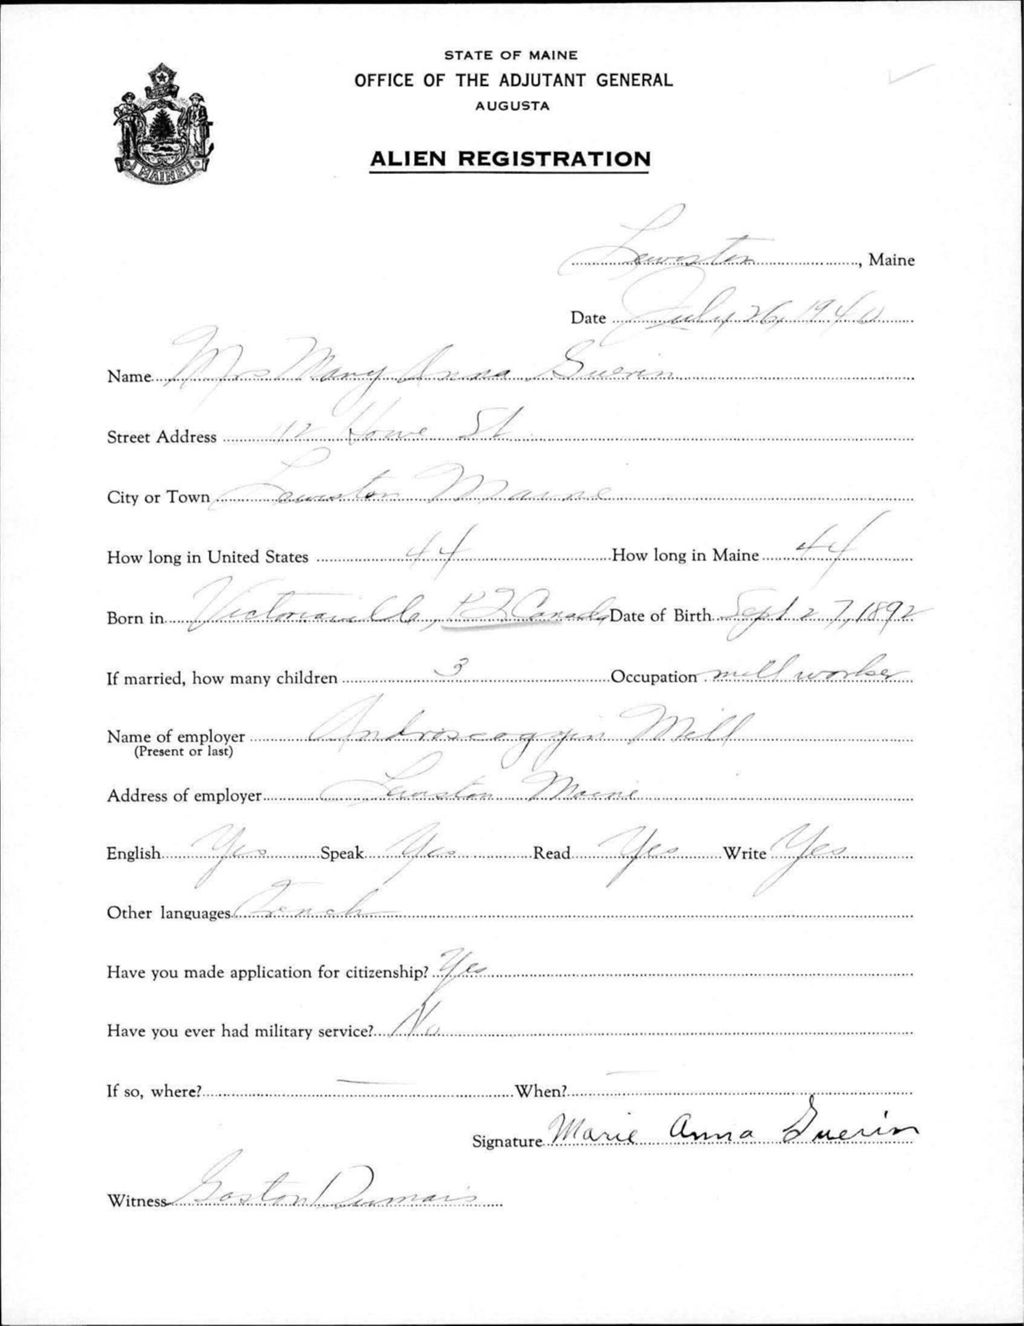 STATE OF MAINE
OFFICE OF THE ADJUTANT GENERAL
AUGUSTA
ALIEN REGISTRATION
MAINE
Lewiston, Maine
Date July 26, 1940
Name Mrs Mary Anna Guerin
Street Address 112 Howe St
City or Town Lewiston Maine
How long in United States 44 How long in Maine 44
Born in Victoriaville, P2 Canada Date of Birth Sept 27, 1892
If married, how many children 3 Occupation mill worker
Name of employer Androscoggin Mill
(Present or last)
Address of employer Lewiston Maine
English Yes Speak Yes Read Yes Write Yes
Other languages French
Have you made application for citizenship? Yes
Have you ever had military service? No
If so, where? — When? —
Signature Marie Anna Guerin
Witness Gaston Dumais